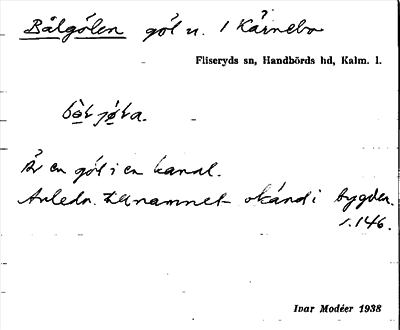 Bålgölen göl n. 1 Kårnebo
Fliseryds sn, Handbörds hd, Kalm. l.
Är en göl i en kanal.
Anledn. till namnet okänd i bygden.
s. 146.
Ivar Modéer 1938